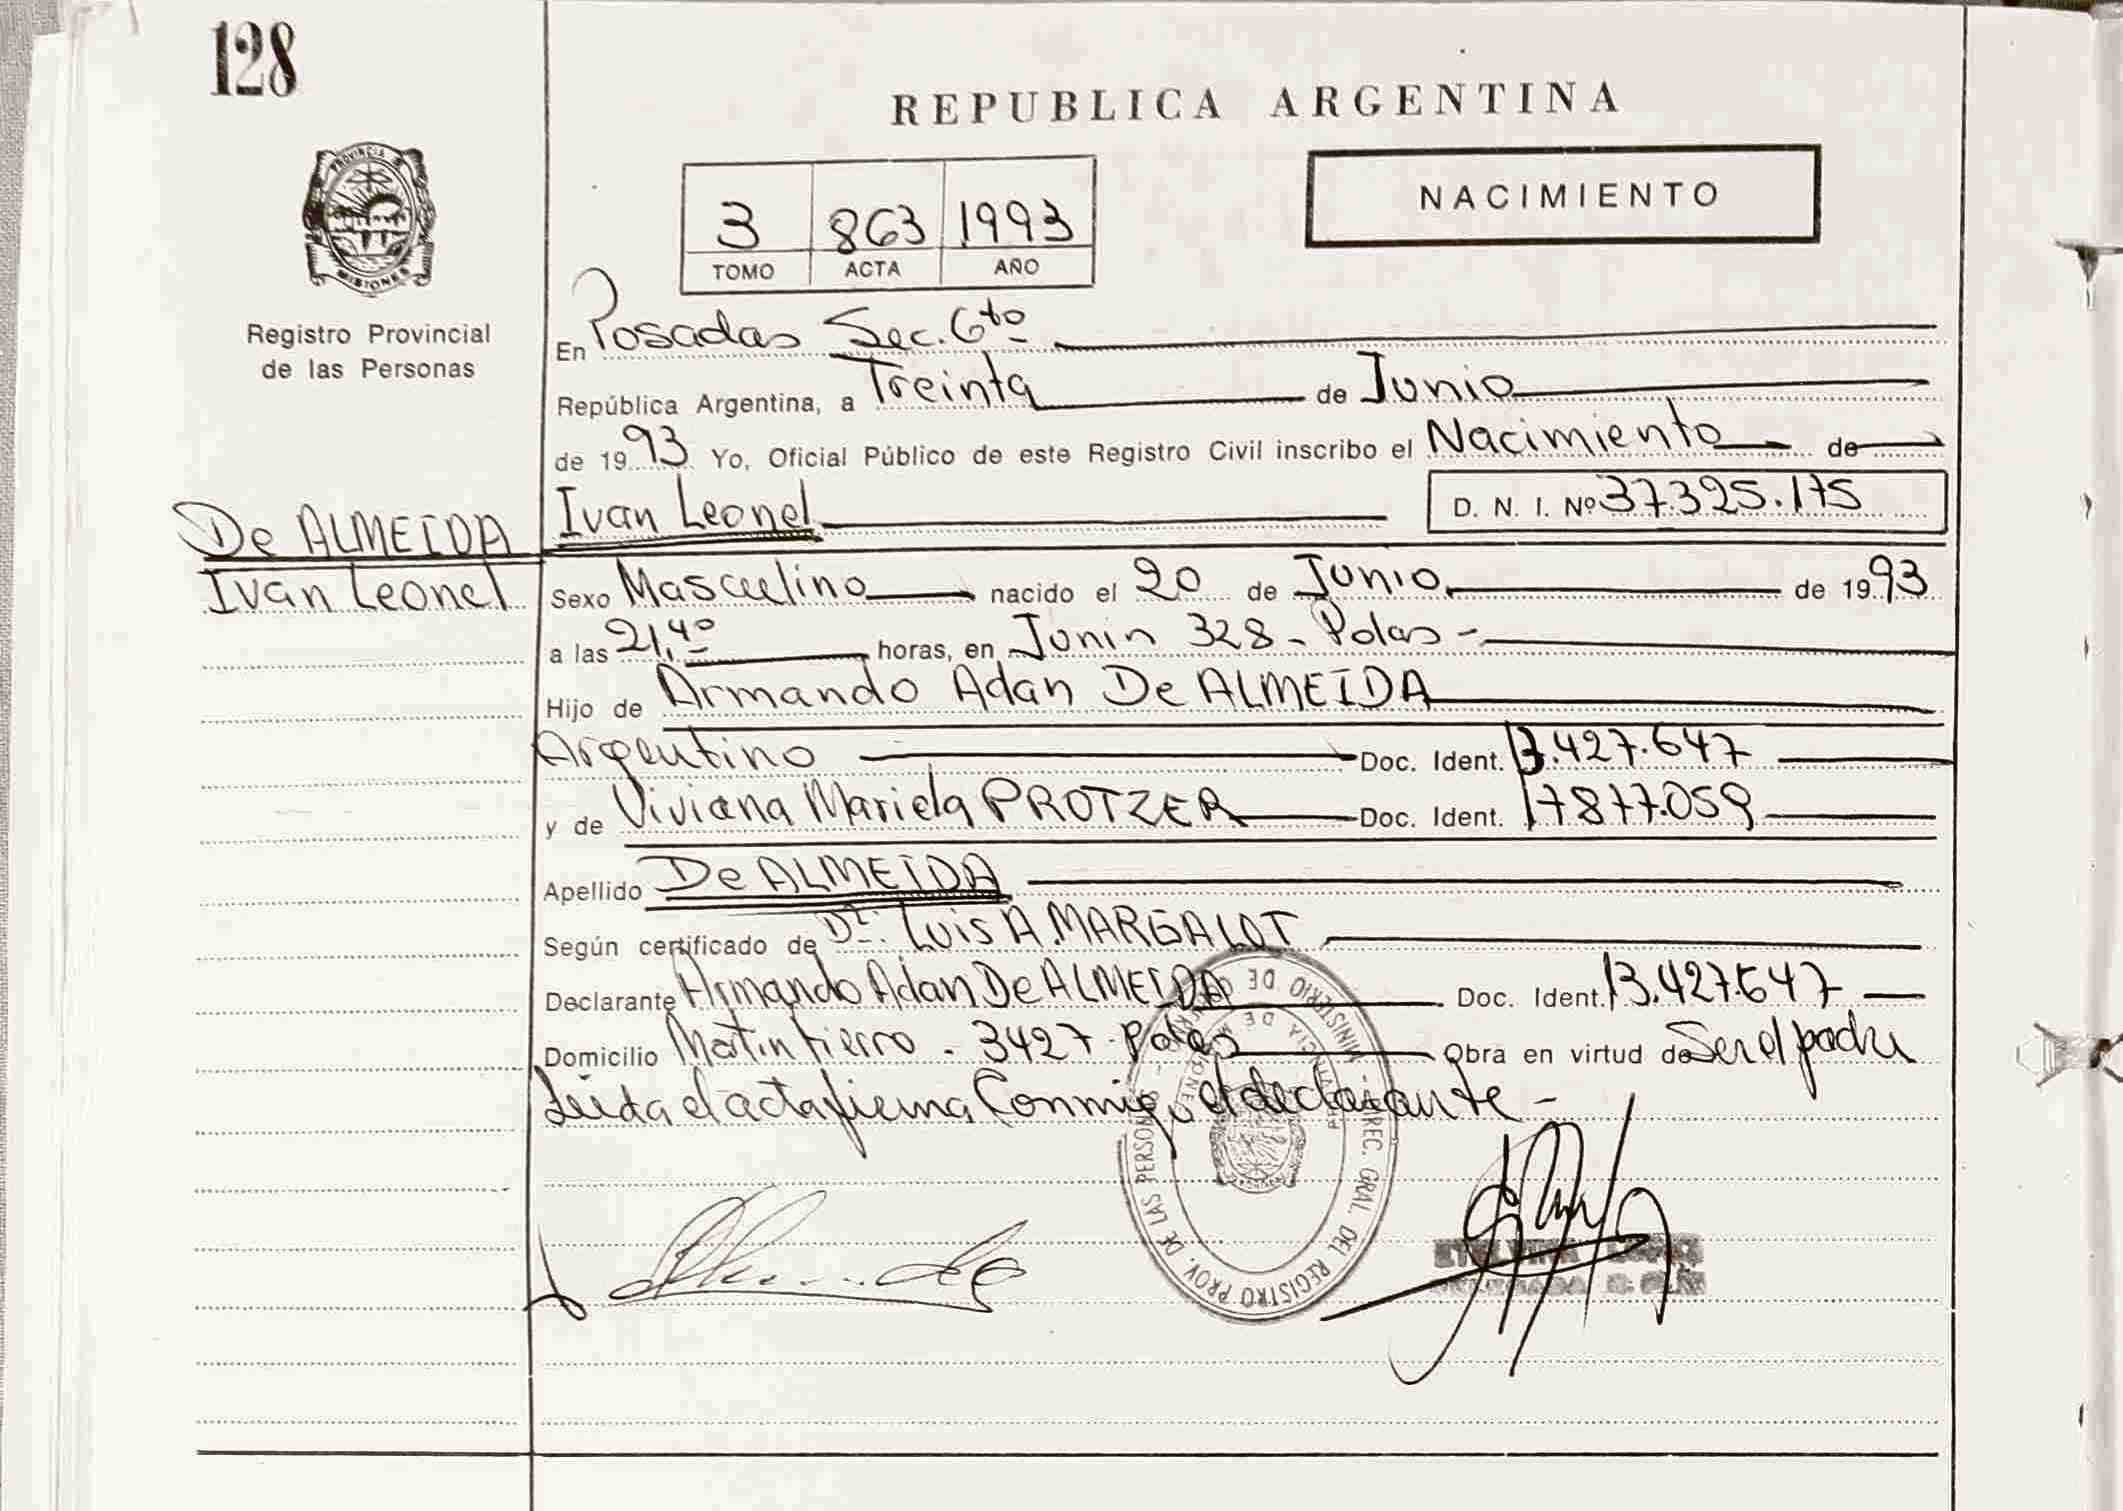 128
REPUBLICA ARGENTINA
NACIMIENTO
PROVINCIA DE
MISIONES
3 863 1993
TOMO ACTA AÑO
Registro Provincial
de las Personas
En Posadas Sec. 6to
República Argentina, a Treinta de Junio
de 1993 Yo, Oficial Público de este Registro Civil inscribo el Nacimiento de
De ALMEIDA
Ivan Leonel
Ivan Leonel D. N. I. Nº 37.325.175
Sexo Masculino nacido el 20 de Junio de 1993
a las 21,40 horas, en Junin 328 - Pdas -
Hijo de Armando Adan De ALMEIDA
Argentino Doc. Ident. 13.427.647
y de Viviana Mariela PROTZER Doc. Ident. 17877.059
Apellido De ALMEIDA
Según certificado de Dr. Luis A. MARGALOT
Declarante Armando Adan De ALMEIDA Doc. Ident. 13.427.647
Domicilio Martin Fierro - 3427 - Pdas Obra en virtud de Ser el padre
Leida el acta firma Conmigo el declarante -
MINISTERIO DE - DIREC. GRAL. DEL REGISTRO PROV. DE LAS PERSONAS -
PROVINCIA DE MISIONES